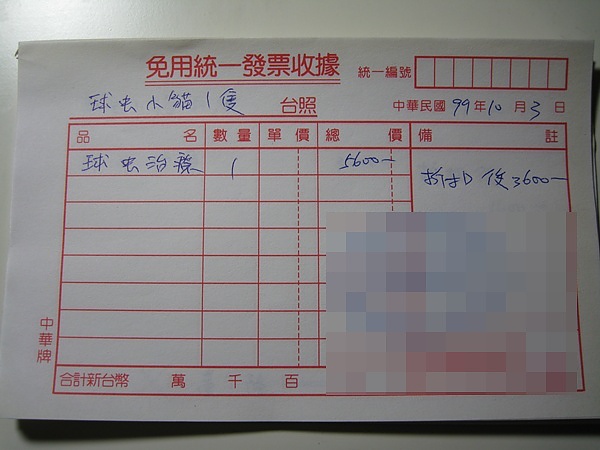 免用統一發票收據
統一編號
球虫小貓1隻 台照 中華民國 99年10月3日
品名 數量 單價 總價 備註
球虫治療 1 5600—
折扣 後3600—
中華牌
合計新台幣 萬 千 百